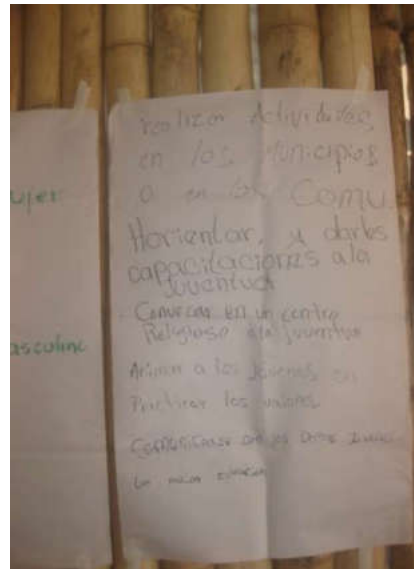 ujer
asculino
realizar Actividades
en los Municipios
o en las Comu.
Horientar, y darles
capacitaciones a la
juventud
Convocar en un centro
Religioso a la juventud
Animar a los Jóvenes en
Practicar los valores
Comunicarse con los
La mejor